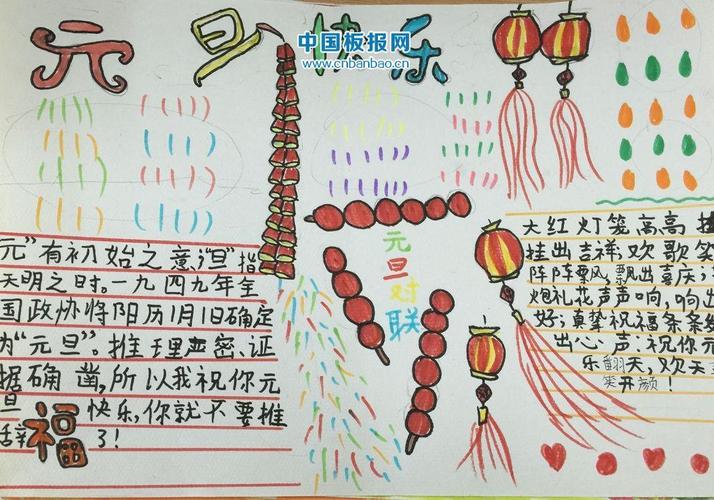 元旦快乐
中国板报网
www.cnbanbao.cn
元”有初始之意,“旦”指
天明之时。一九四九年全
国政协将阳历1月1日确定
为“元旦”。推理严密、证
据确凿,所以我祝你元
旦快乐,你就不要推
辞了!
福
元旦对联
大红灯笼高高挂
挂出吉祥,欢歌笑
阵阵飘,飘出喜庆;
炮礼花声声响,响出
好;真挚祝福条条
出心声:祝你元
乐翻天,欢天
笑开颜!